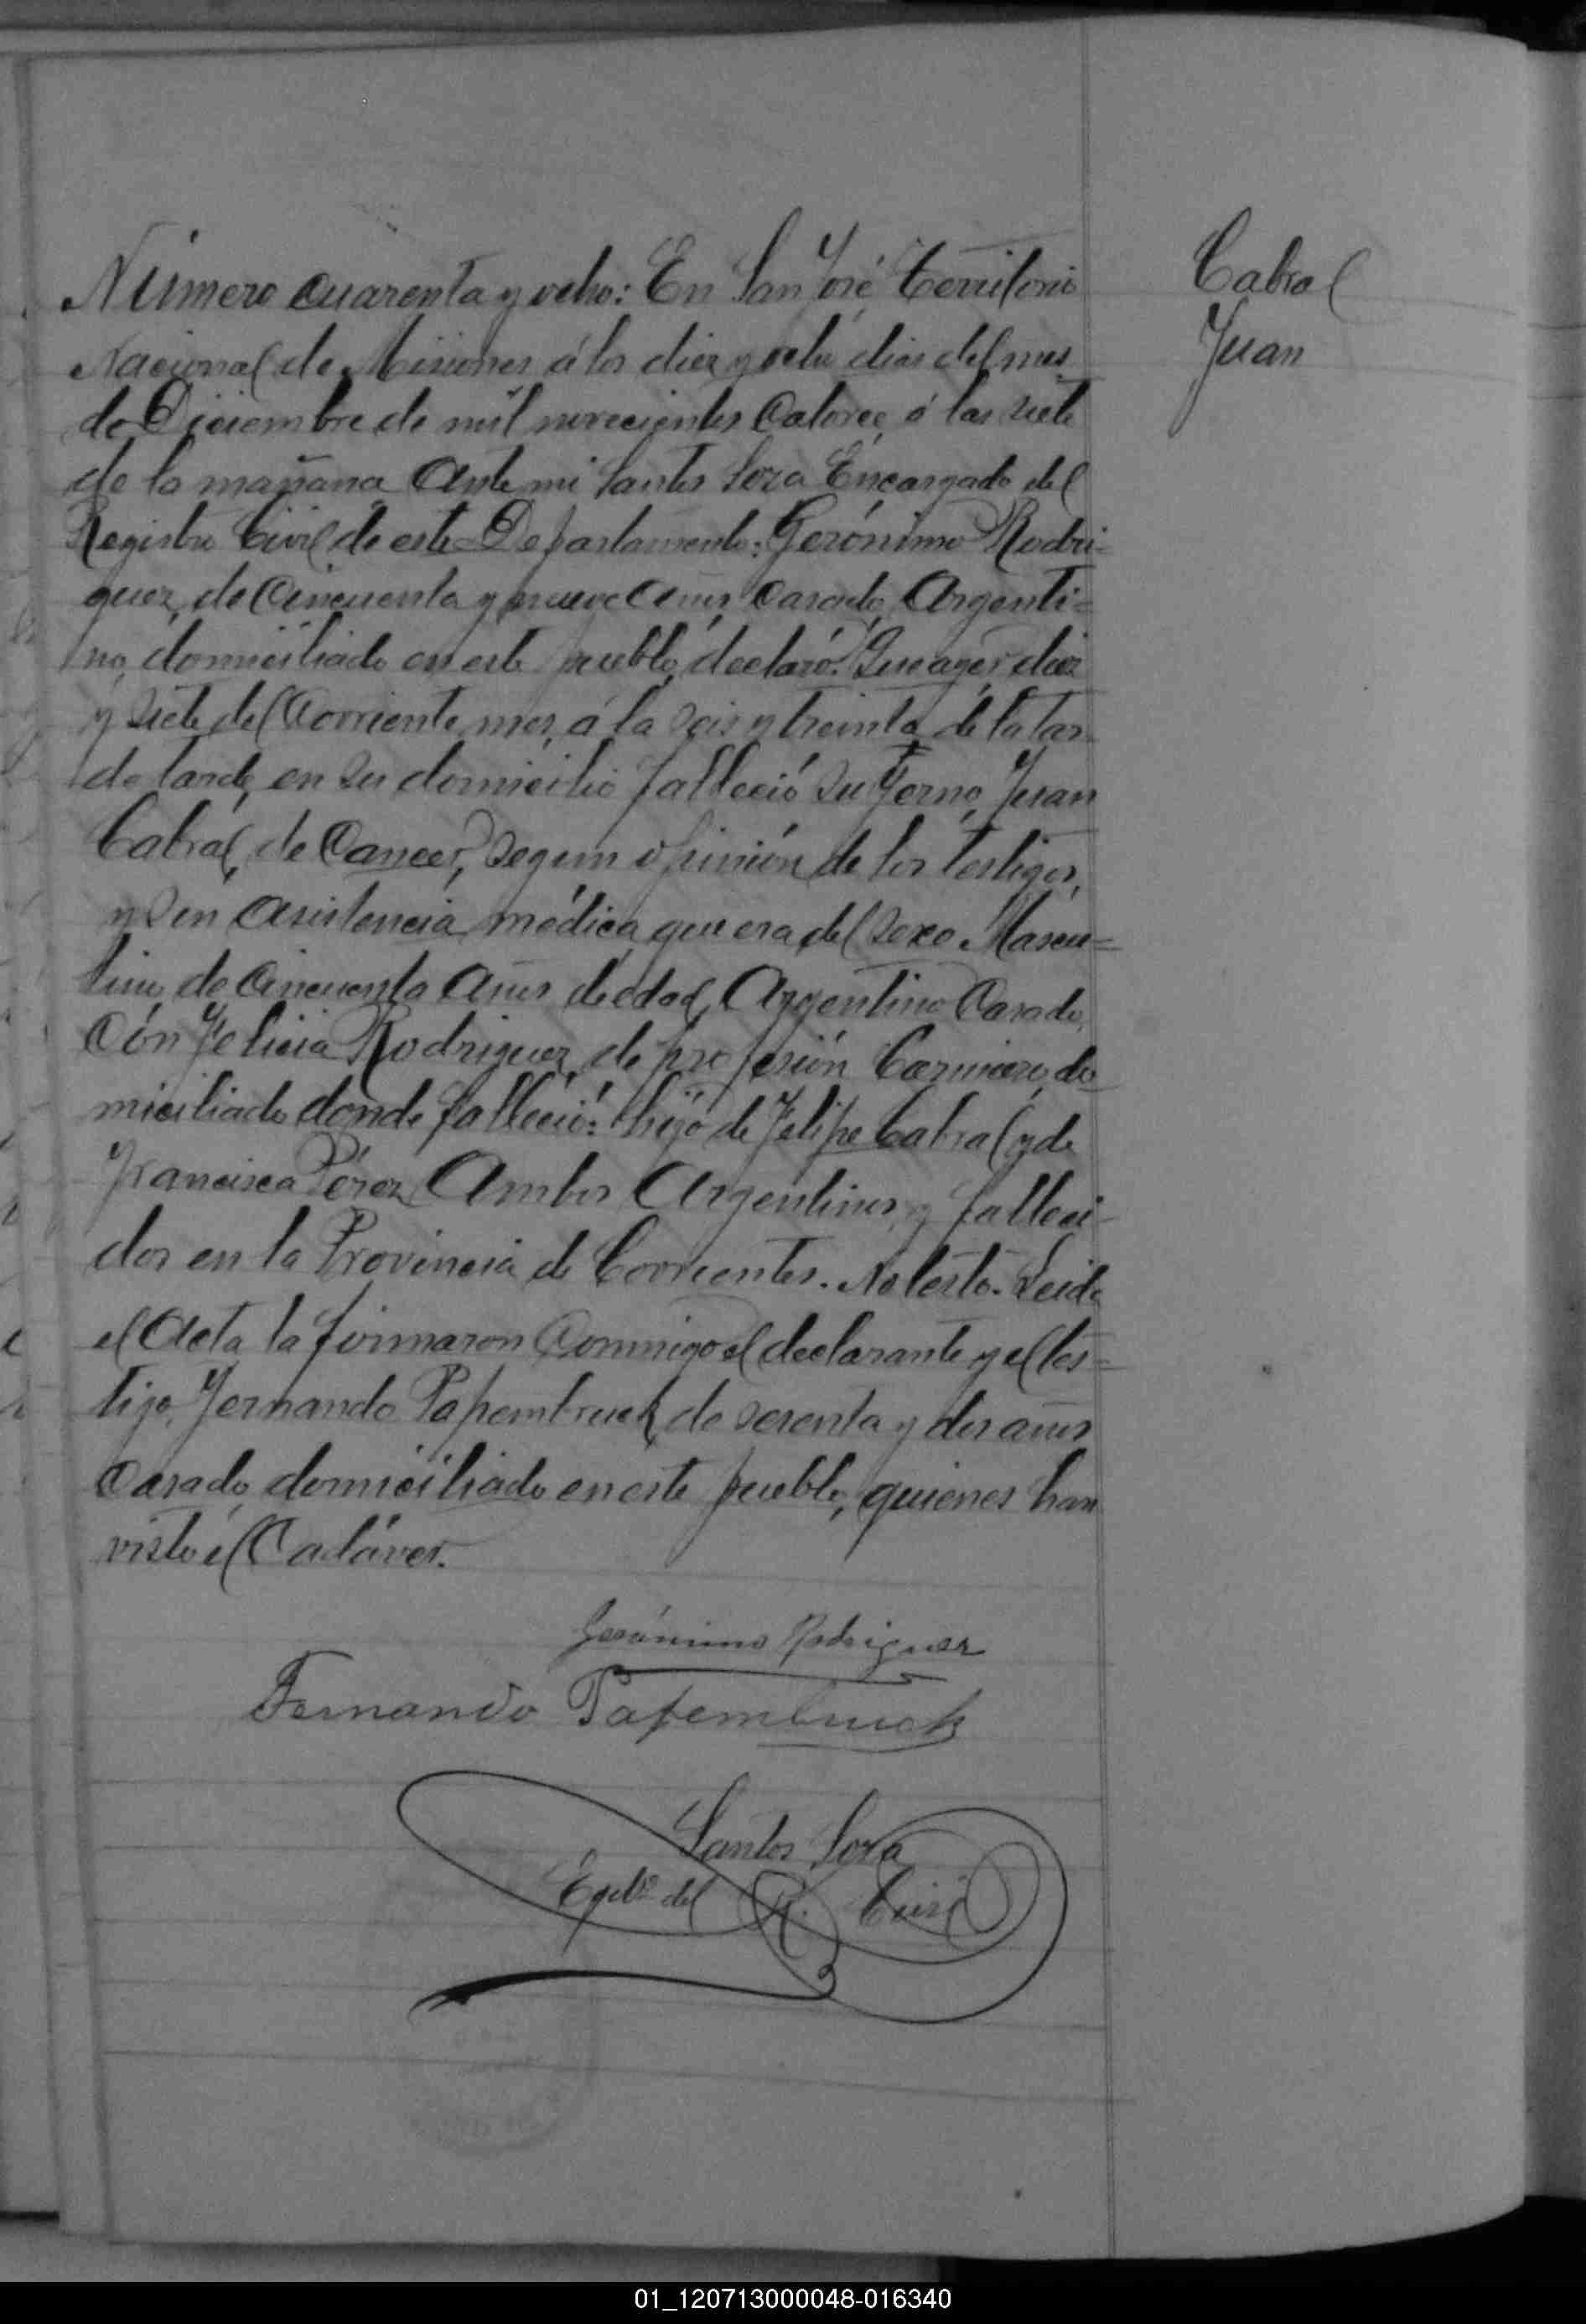 Número cuarenta y ocho: En San José, Territorio
Cabral
Juan
Nacional de Misiones á los diez y ocho dias del mes
de Diciembre de mil novecientos Catorce, á las siete
de la mañana Ante mi Santos Soza Encargado del
Registro Civil de este Departamento: Gerónimo Rodri=
guez, de Cincuenta y nueve Años, Casado, Argenti=
no, domiciliado en este pueblo, declaró: Que ayer diez
y siete del Corriente mes, á la seis y treinta de la tar
de tarde, en su domicilio falleció su Yerno, Juan
Cabral, de Cancer, segun opinión de los testigos,
y sin asistencia médica, que era del sexo Mascu=
lino, de Cincuenta Años de edad, Argentino Casado,
Con Felicia Rodriguez, de profesión Carnicero, do
miciliado donde falleció: hijo de Felipe Cabral y de
Francisca Pérez, Ambos Argentinos, y falleci-
dos en la Provincia de Corrientes. No testó. Leida
el Acta la firmaron Conmigo el declarante y el tes=
tigo, Fernando Papembruck, de sesenta y dos años
Casado, domiciliado en este pueblo, quienes han
visto el Cadáver.
Gerónimo Rodriguez
Fernando Papembruck
Santos Soza
Egdo del R. Civil
01_120713000048-016340